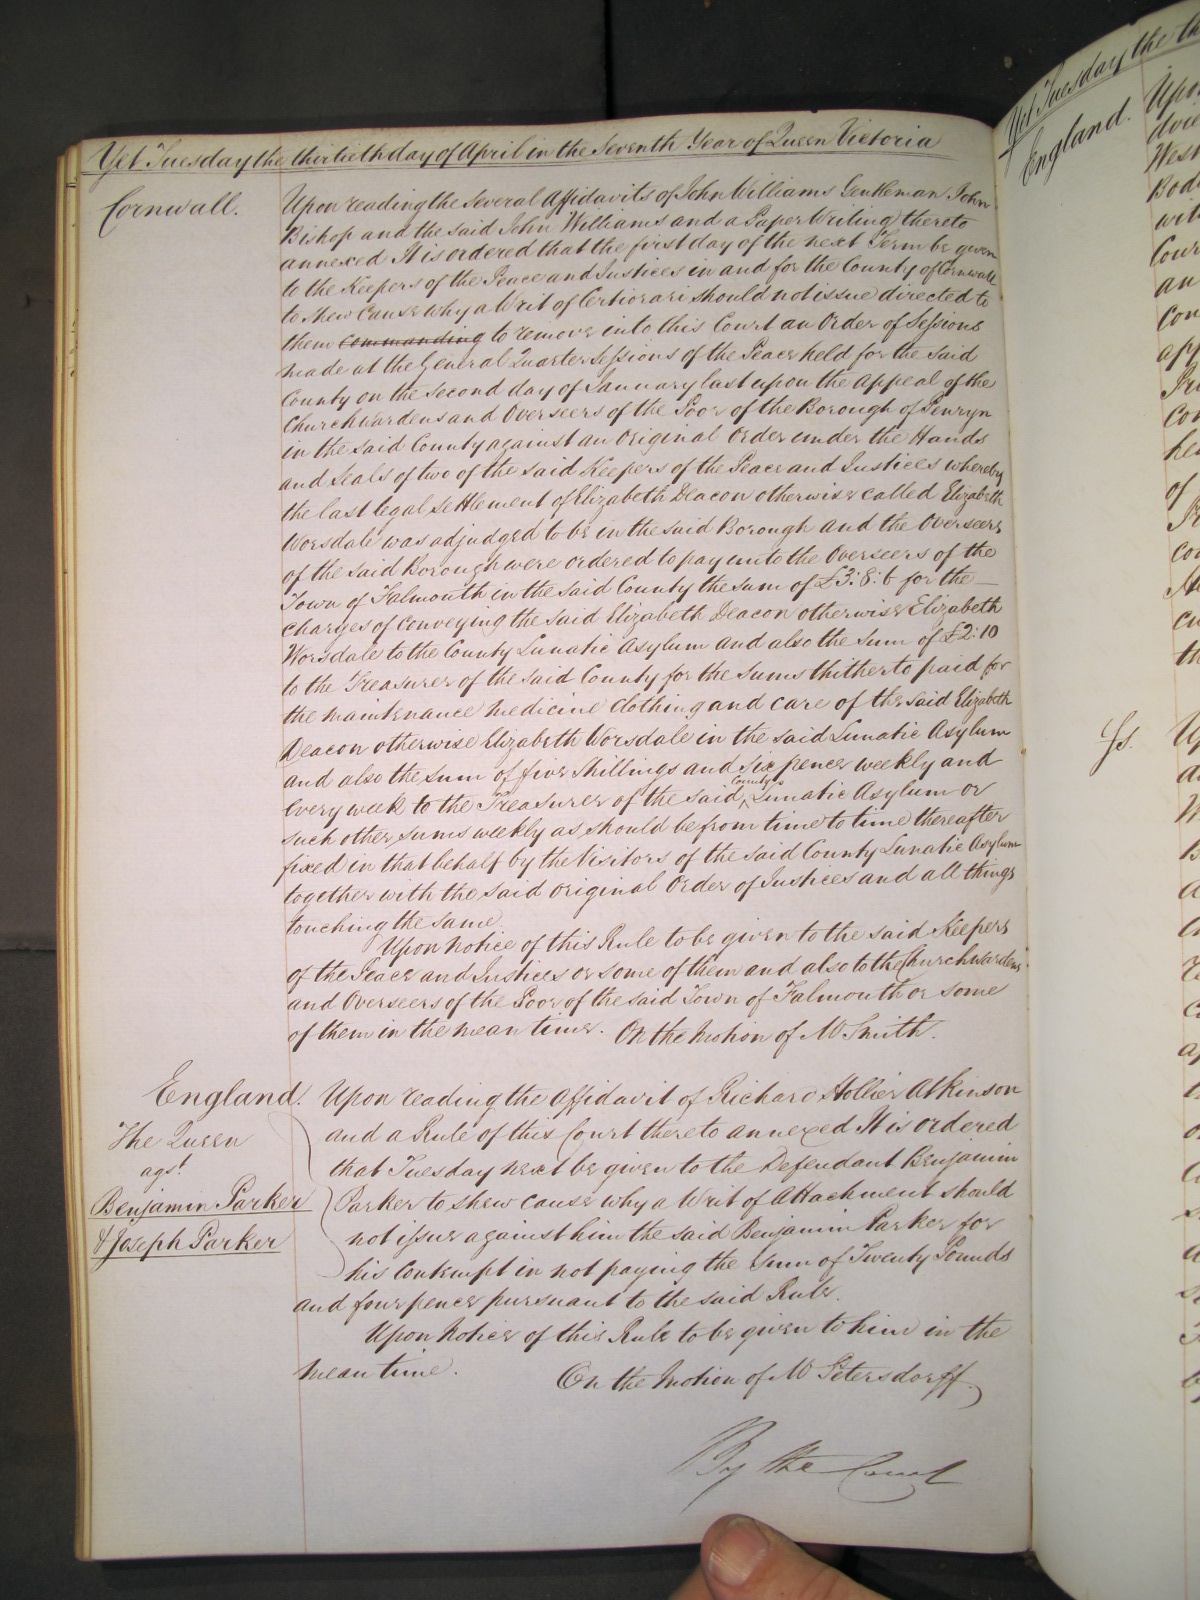 Yet Tuesday the thirtieth day of April in the Seventh Year of Queen Victoria
Cornwall.
Upon reading the several Affidavits of John Williams Gentleman John
Bishop and the said John Williams and a Paper Writing thereto
annexed It is ordered that the first day of the next Term be given
to the Keepers of the Peace and Justices in and for the County of Cornwall
to shew cause why a Writ of Certiorari should not issue directed to
them commanding to remove into this Court an Order of Sessions
made at the General Quarter Sessions of the Peace held for the said
County on the second day of January last upon the Appeal of the
Churchwardens and Overseers of the Poor of the Borough of Penryn
in the said County against an Original Order under the Hands
and Seals of two of the said Keepers of the Peace and Justices whereby
the last legal settlement of Elizabeth Deacon otherwise called Elizabeth
Worsdale was adjudged to be in the said Borough and the Overseers
of the said Borough were ordered to pay unto the Overseers of the
Town of Falmouth in the said County the sum of £3:8:6 for the
charges of conveying the said Elizabeth Deacon otherwise Elizabeth
Worsdale to the County Lunatic Asylum and also the sum of £2:10
to the Treasurer of the said County for the sums thitherto paid for
the maintenance medicine clothing and care of the said Elizabeth
Deacon otherwise Elizabeth Worsdale in the said Lunatic Asylum
and also the sum of five shillings and six pence weekly and
every week to the Treasurer of the said County Lunatic Asylum or
such other sums weekly as should be from time to time thereafter
fixed in that behalf by the Visitors of the said County Lunatic Asylum
together with the said original Order of Justices and all things
touching the same
Upon notice of this Rule to be given to the said Keepers
of the Peace and Justices or some of them and also to the Churchwardens
and Overseers of the Poor of the said Town of Falmouth or some
of them in the mean time. On the Motion of Mr Smith.
England.
The Queen
agst
Benjamin Parker
& Joseph Parker
Upon reading the Affidavit of Richard Hollier Atkinson
and a Rule of this Court thereto annexed It is ordered
that Tuesday next be given to the Defendant Benjamin
Parker to shew cause why a Writ of Attachment should
not issue against him the said Benjamin Parker for
his Contempt in not paying the sum of Twenty Pounds
and four pence pursuant to the said Rule.
Upon Notice of this Rule to be given to him in the
mean time. On the Motion of Mr Petersdorff.
By the Court
Yet Tuesday the th
England.